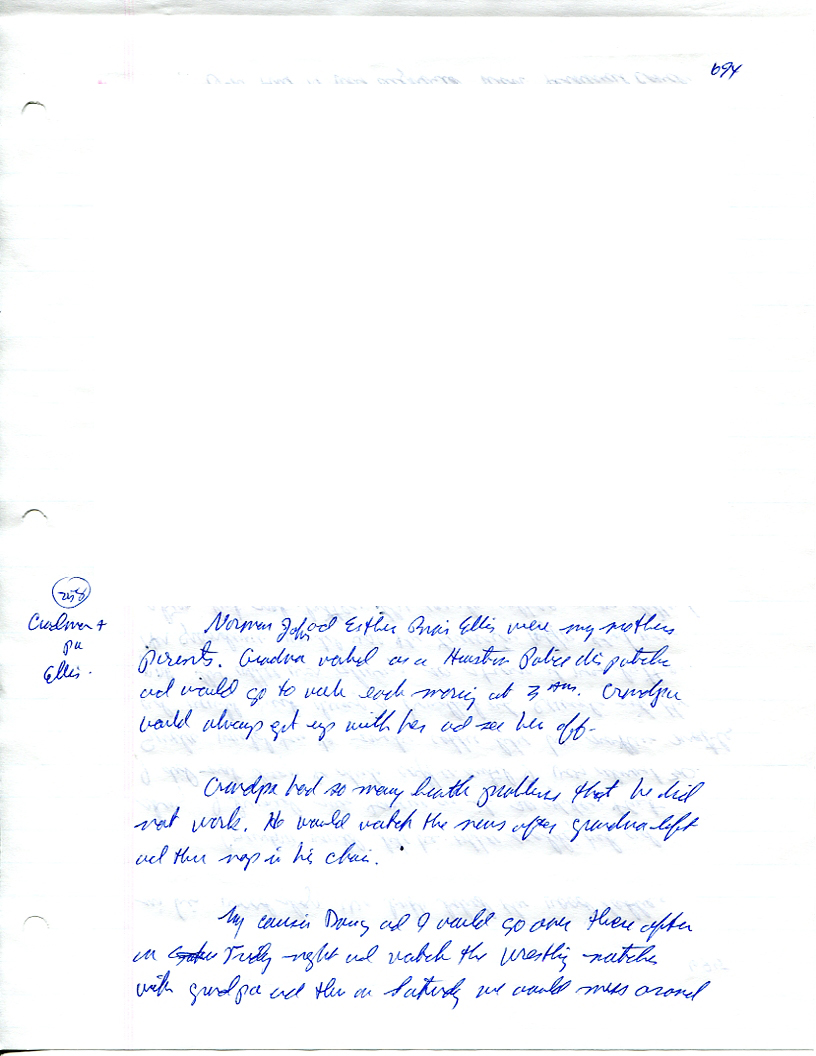 694
Grandma +
pa
Ellis.
Norman John and Esther Ellis were my mothers
parents. Grandma worked as a Houston Police dispatcher
and would go to work each morning at 3 AM. Grandpa
would always get up with her and see her off.
Grandpa had so many health problems that he did
not work. He would watch the news after grandma left
and then nap in his chair.
My cousin Doug and I would go over there often
on Friday night and watch the wrestling matches
with grandpa and then on Saturday we would mess around